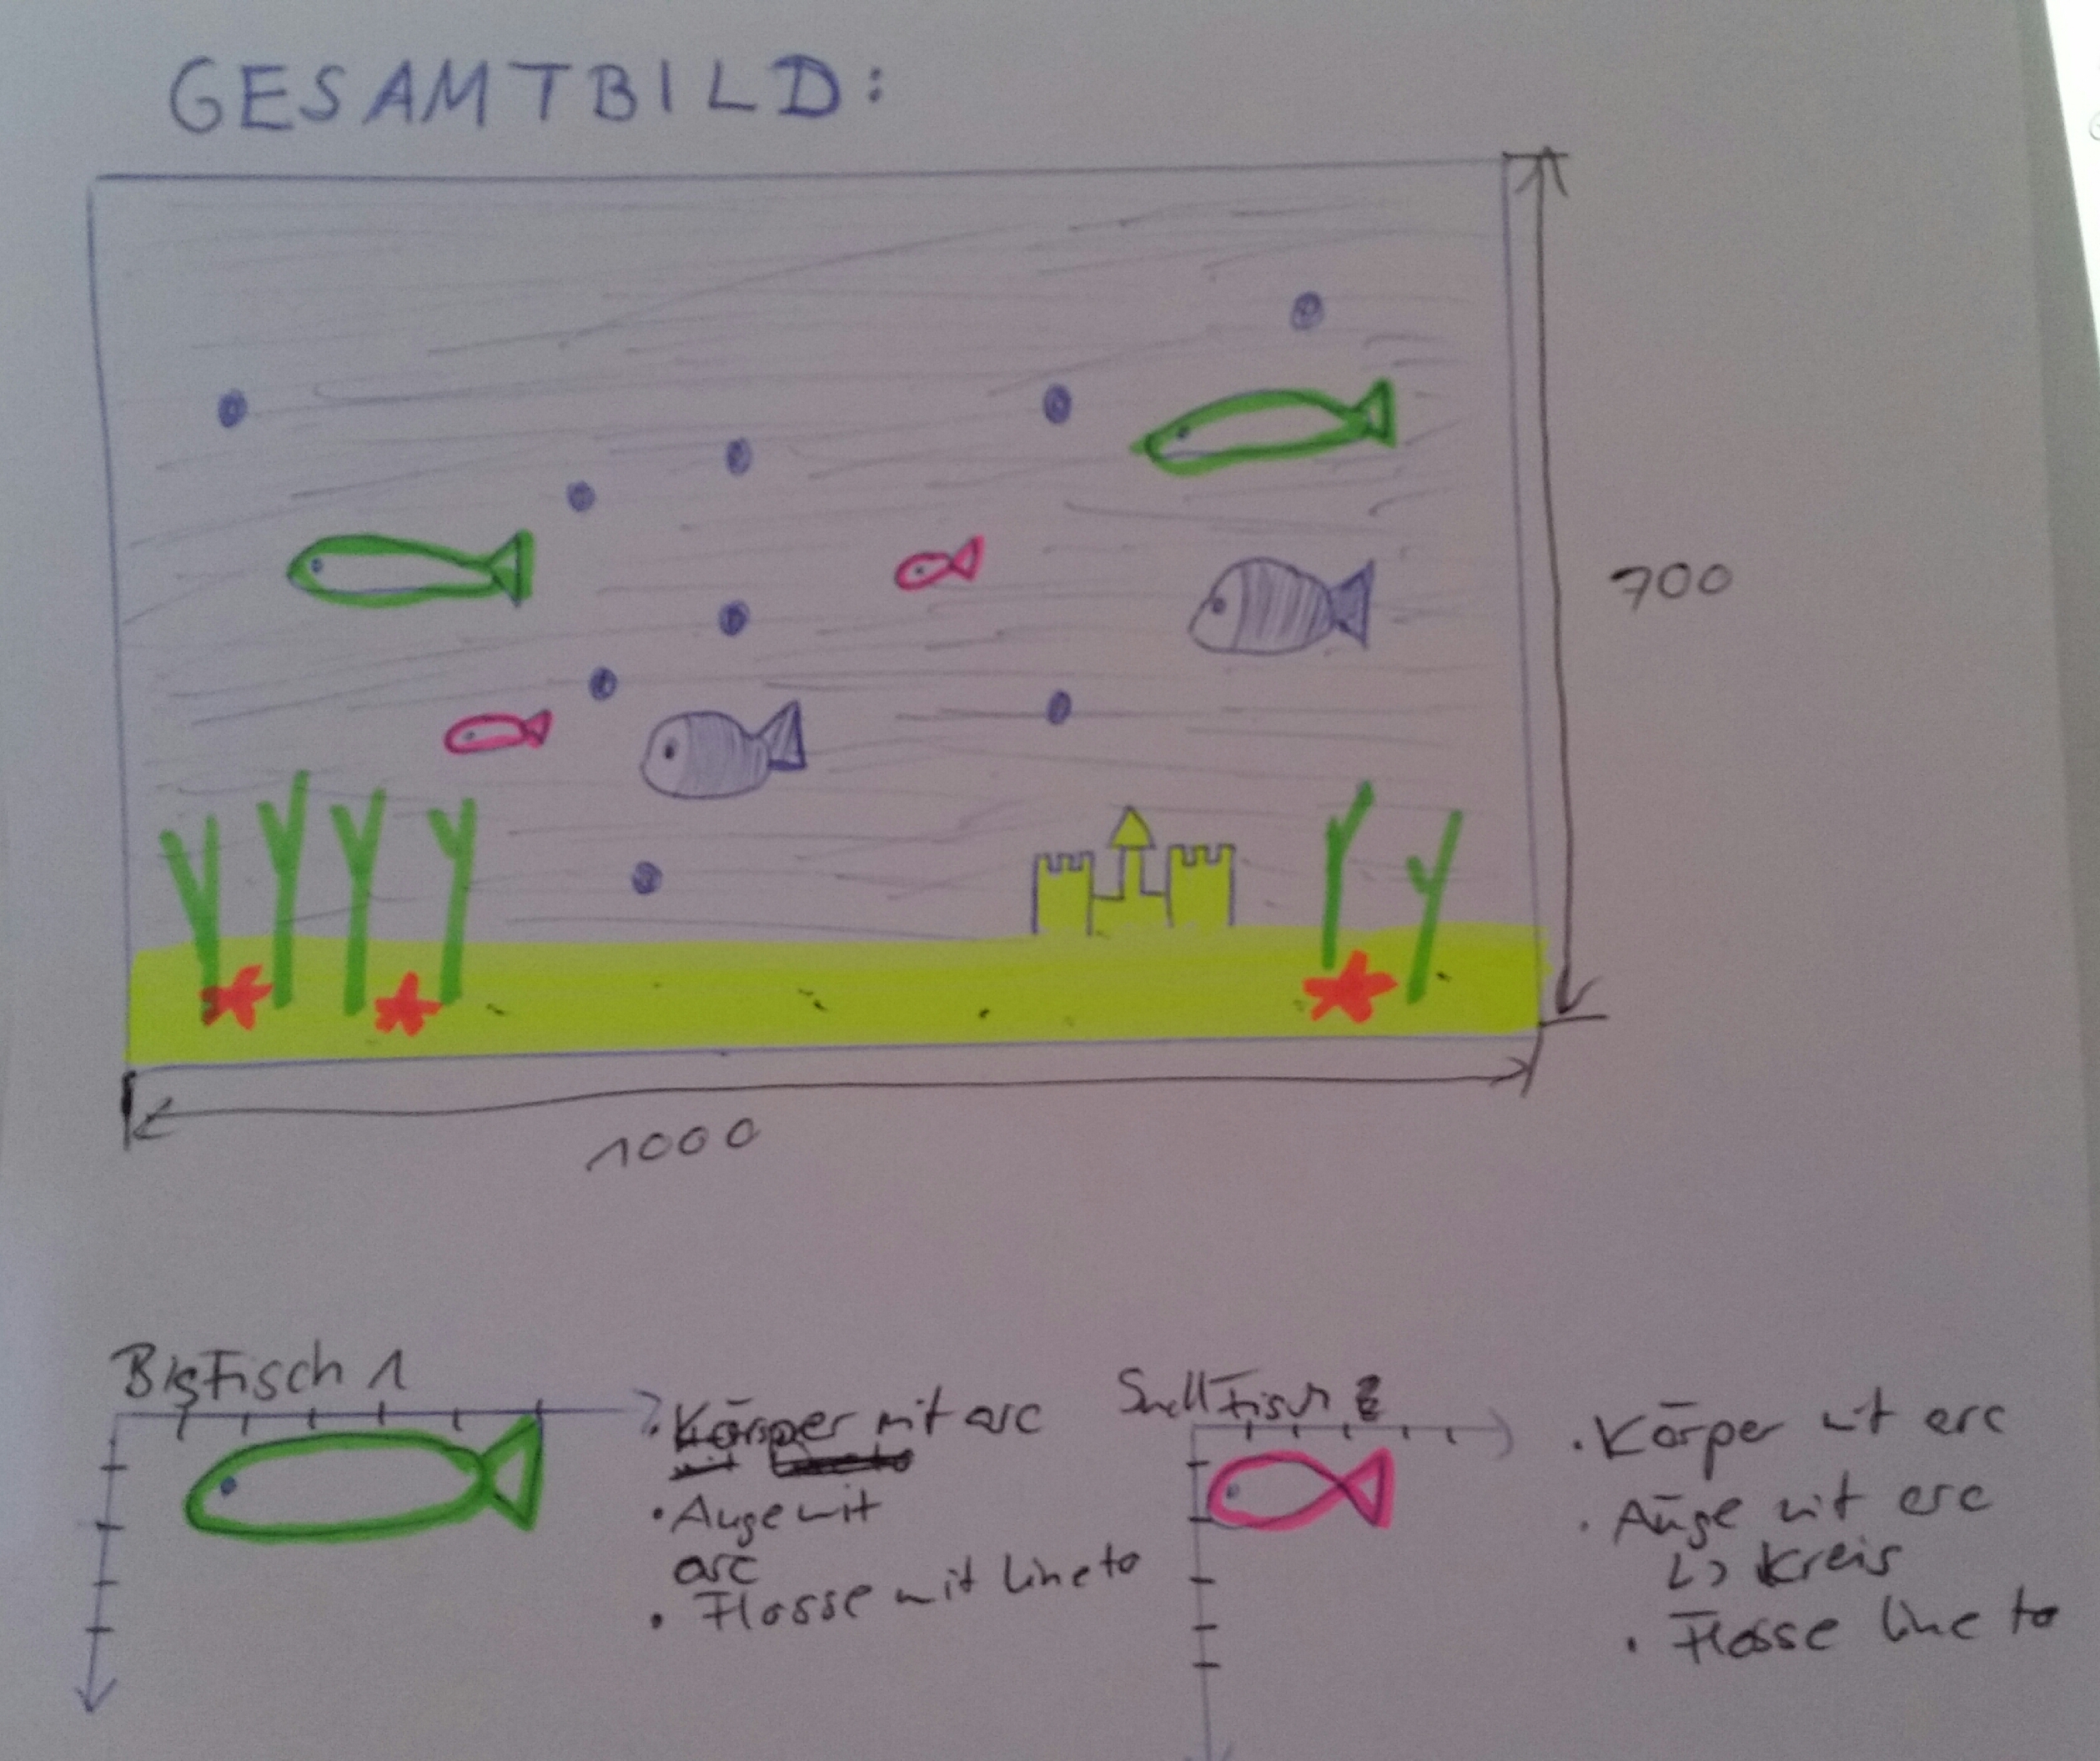 GESAMTBILD:
700
1000
BigFisch 1
• Körper mit arc
• Auge mit
arc
• Flosse mit lineto
Fisch
• Körper mit arc
• Auge mit arc
↳ Kreis
• Flosse line to